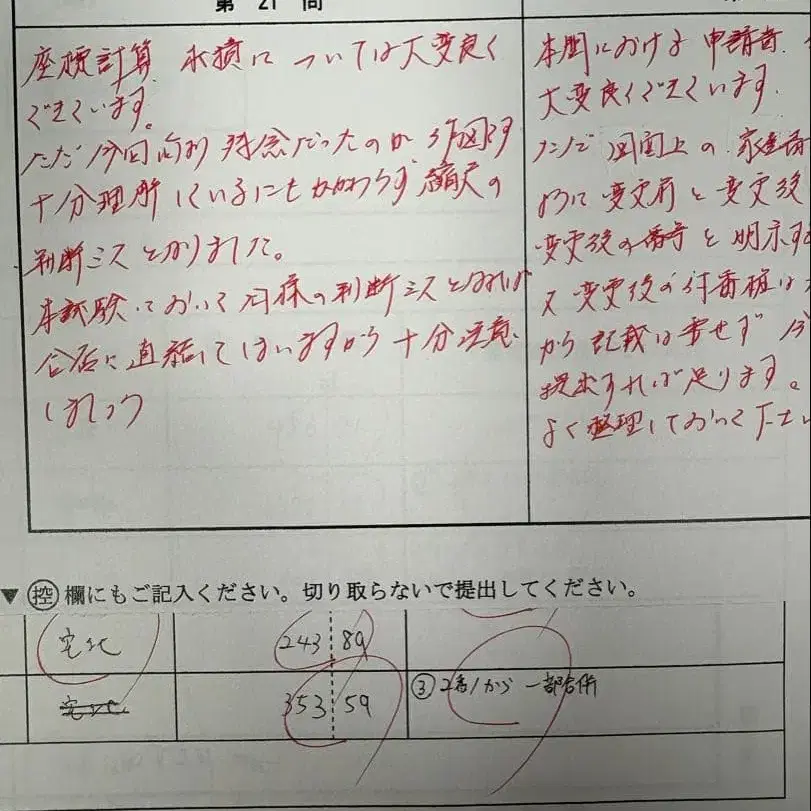 第 21 問
座標計算、求積については大変良く
できています。
ただ今回何より残念だったのが作図で
十分理解しているにもかかわらず縮尺の
判断ミスとなりました。
本試験において同様の判断ミスとなれば
合否に直結してしまいますから十分注意
しましょう
本問における申請書、
大変良くできています。
ただ図面上の家屋番
変更前と変更後
変更後の番号を明示する
又変更後の
から記載は要せず
提出すれば足ります。
よく整理しておいて下さい
▼ 控 欄にもご記入ください。切り取らないで提出してください。
宅地 243 89
宅地 353 59 ③2番1から一部合併